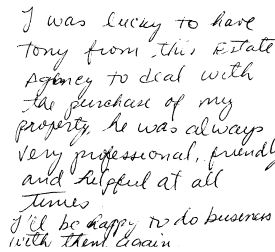 I was lucky to have
Tony from this Estate
Agency to deal with
the purchase of my
property, he was always
very professional, friendly
and helpful at all
times.
I'll be happy to do business
with them again